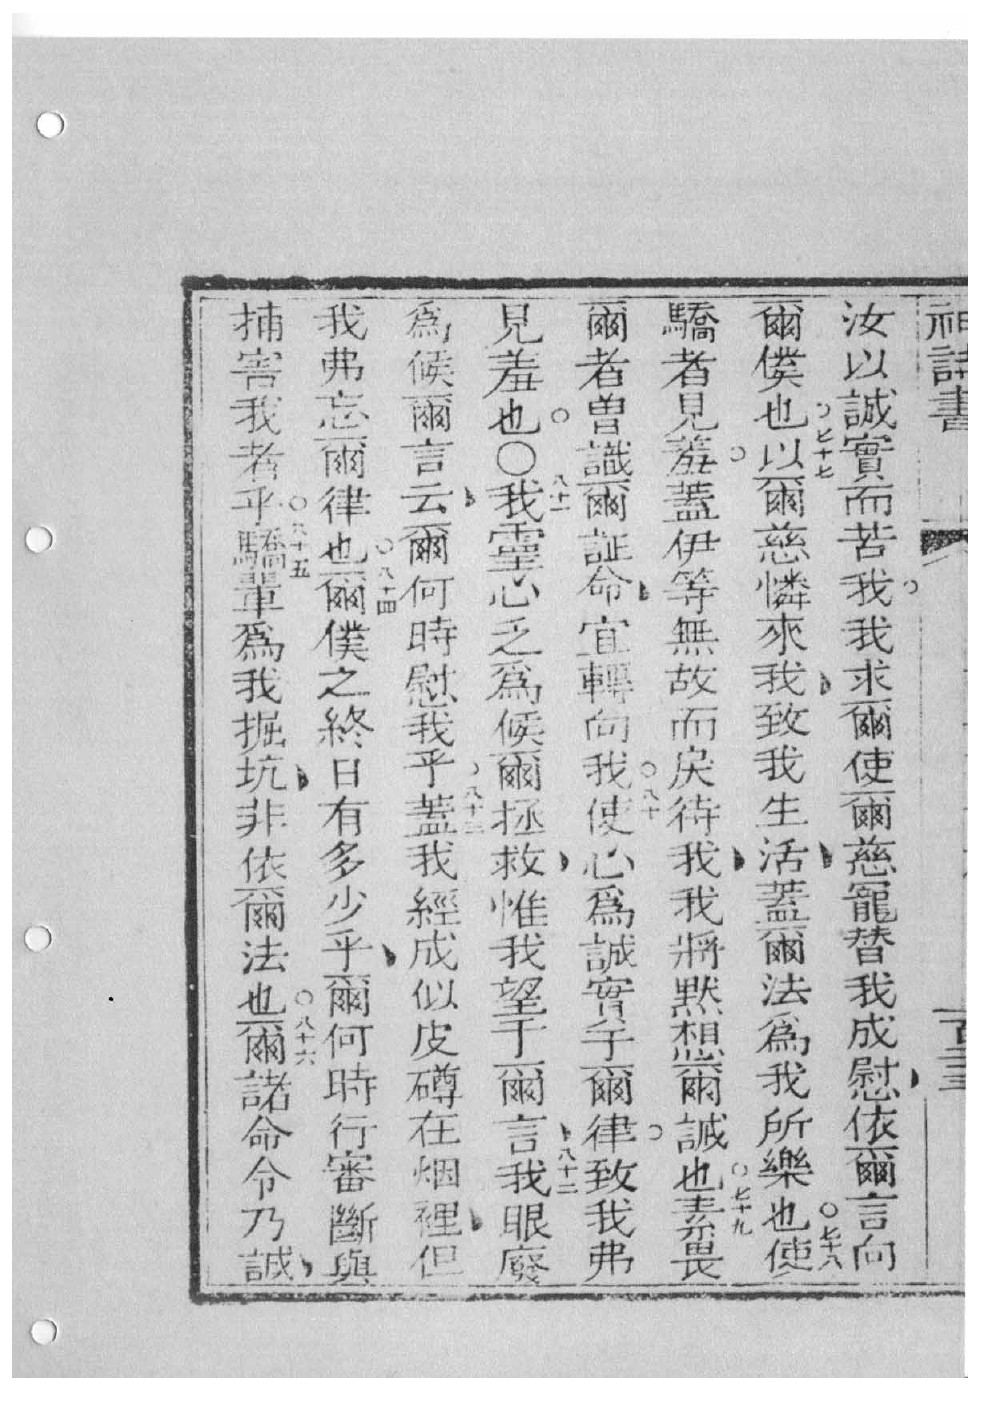 神詩書 百三
汝以誠實而苦我。我求爾使爾慈寵替我成慰、依爾言向
爾僕也。七十七以爾慈憐來我、致我生活、蓋爾法為我所樂也。七十八使
驕者見羞。蓋伊等無故而戾待我、我將默想爾誡也。七十九素畏
爾者曽識爾証命、宜轉向我。八十使心為誠實于爾律。致我弗
見羞也。〇八十一我靈心乏為候爾拯救、惟我望于爾言、八十二我眼廢
為候爾言云、爾何時慰我乎。八十三蓋我經成似皮罇在烟裡、但
我弗忘爾律也。八十四爾僕之終日有多少乎、爾何時行審斷與
捕害我者乎。八十五驕輩為我掘坑、非依爾法也。八十六爾諸命令乃誠、